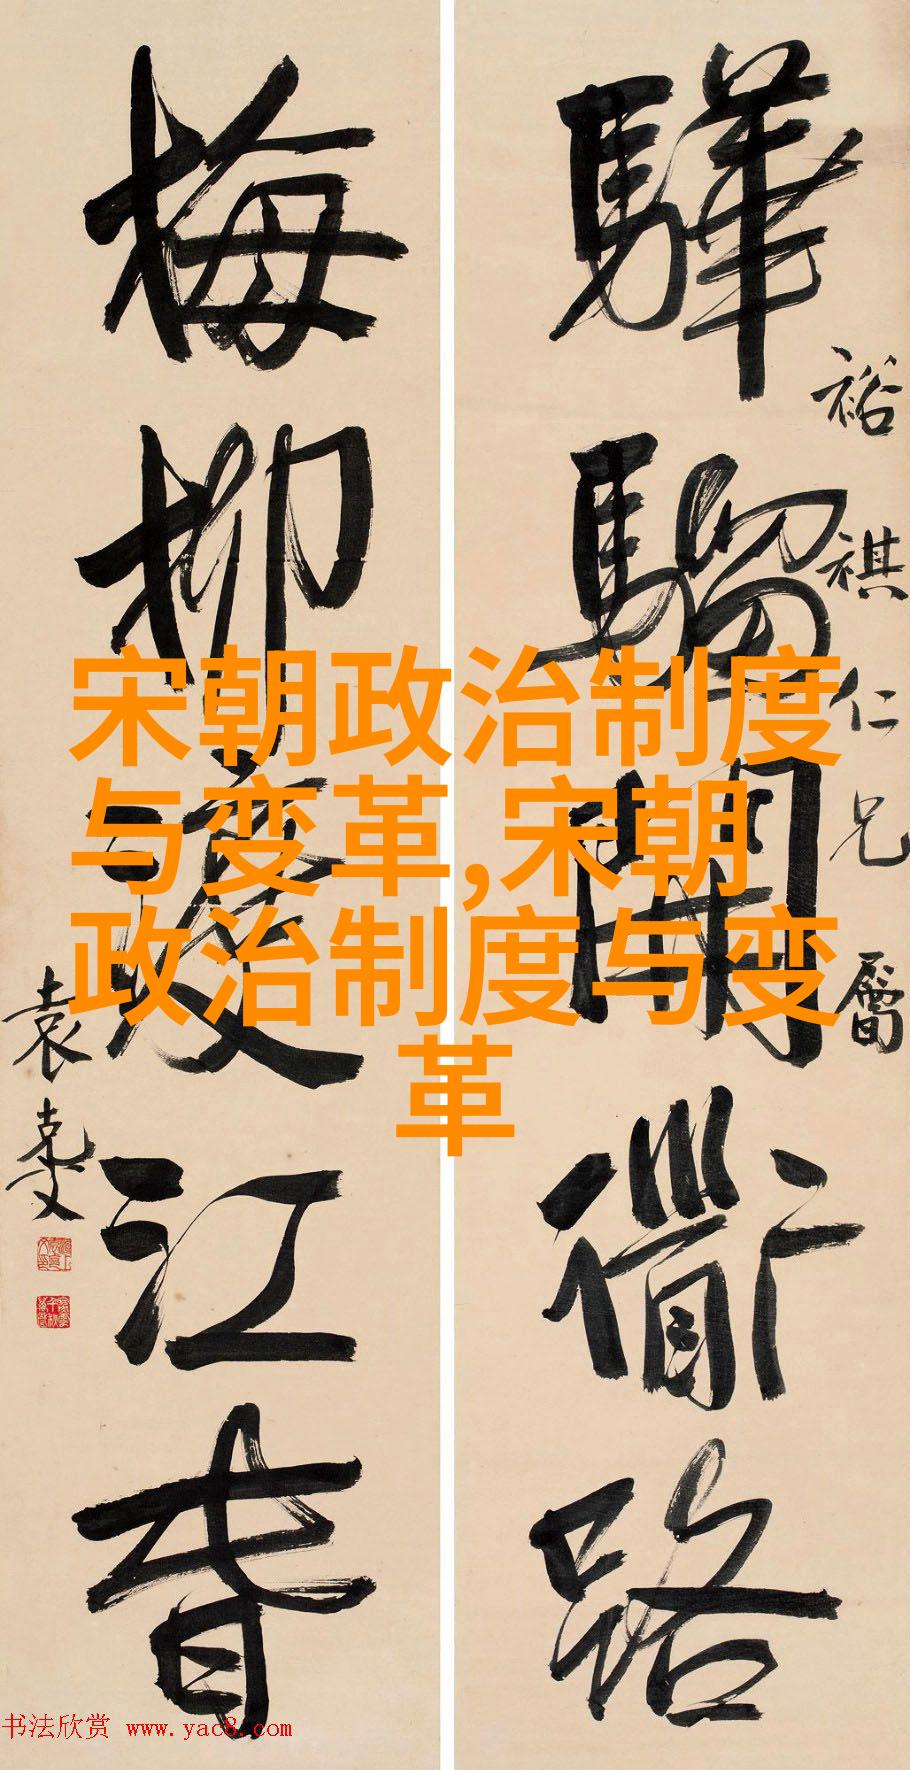 驊騮開道路
裕祺仁兄屬
梅柳渡江春
袁克文
宋朝政治制度
与变革,宋朝
政治制度与变
革
书法欣赏 www.yac8.com